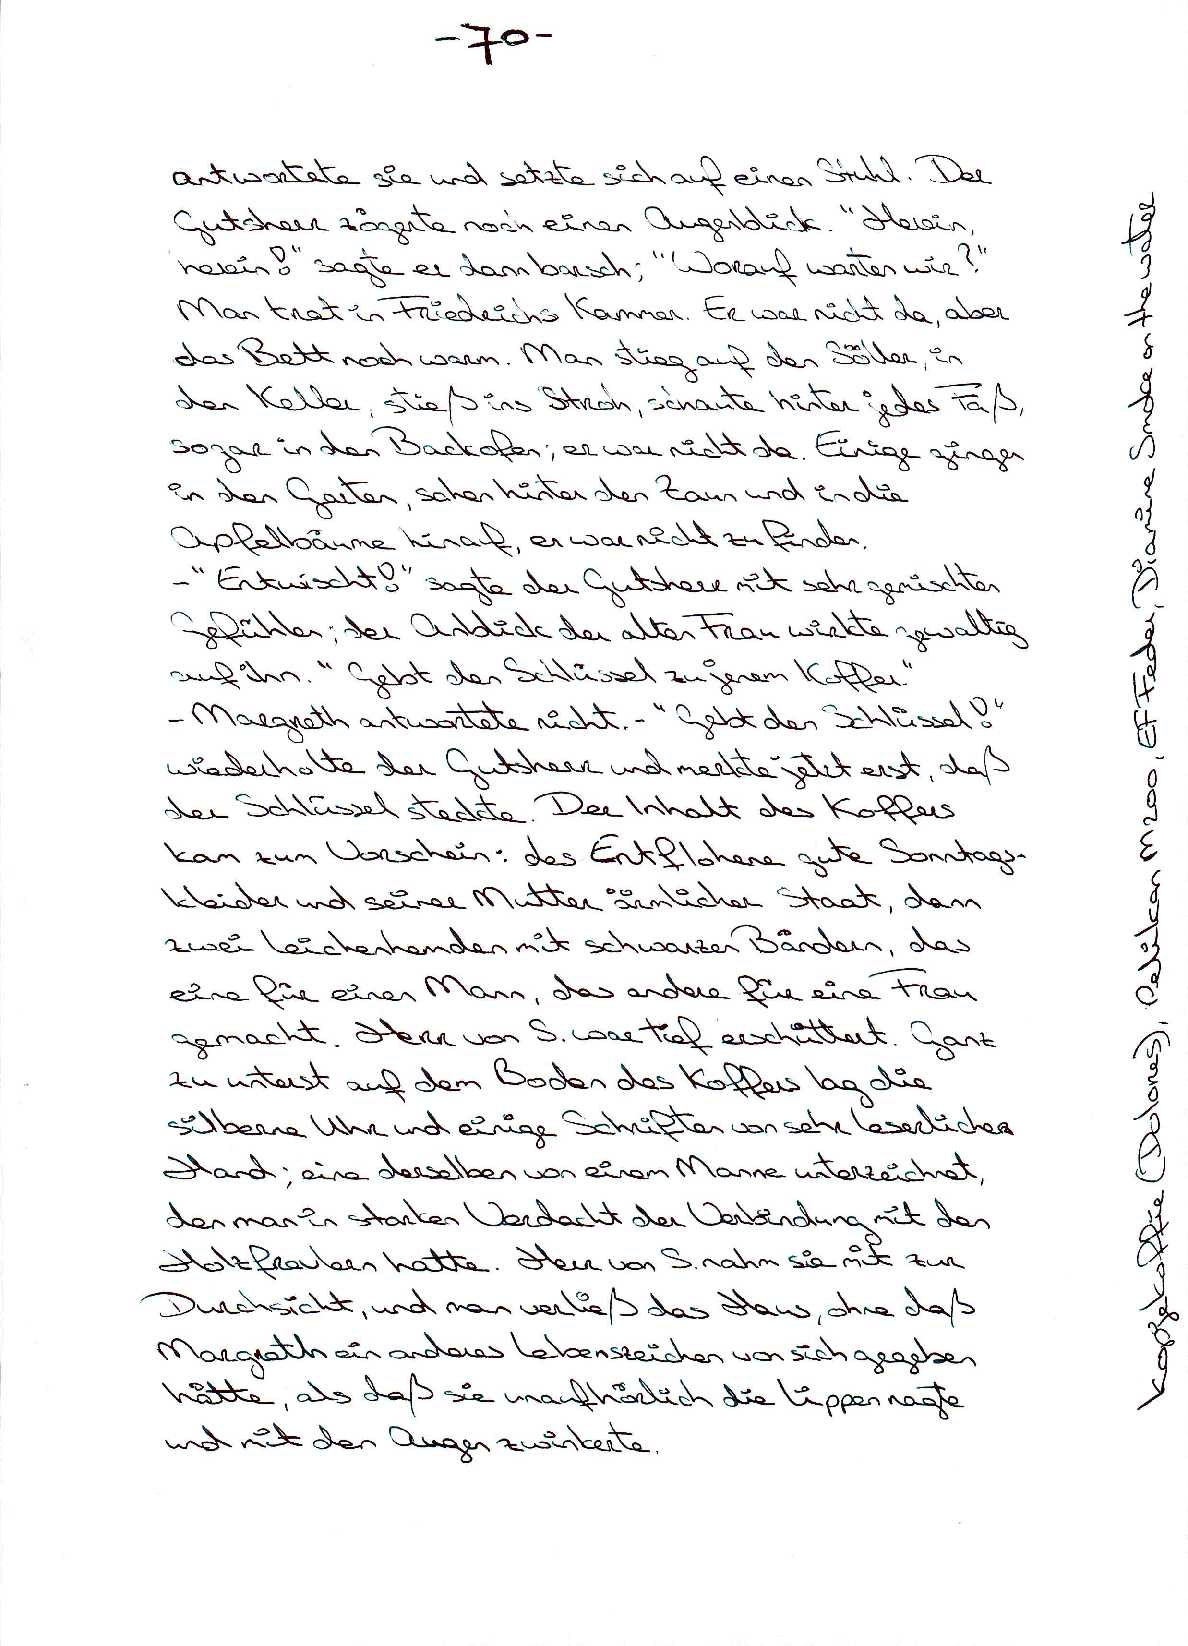 -70-
antwortete sie und setzte sich auf einen Stuhl. Der
Gutsherr zögerte noch einen Augenblick. "Herein,
herein!" sagte er dann barsch; "Worauf warten wir?"
Man trat in Friedrichs Kammer. Er war nicht da, aber
das Bett noch warm. Man stieg auf den Söller, in
den Keller, stieß ins Stroh, schaute hinter jedes Faß,
sogar in den Backofen; er war nicht da. Einige gingen
in den Garten, sahen hinter den Zaun und in die
Apfelbäume hinauf, er war nicht zu finden.
-"Entwischt!" sagte der Gutsherr mit sehr gemischten
Gefühlen; der Anblick der alten Frau wirkte gewaltig
auf ihn. "Gebt den Schlüssel zu jenem Koffer."
- Margreth antwortete nicht. - "Gebt den Schlüssel!"
wiederholte der Gutsherr und merkte jetzt erst, daß
der Schlüssel steckte. Der Inhalt des Koffers
kam zum Vorschein: des Entflohene gute Sonntags-
kleider und seiner Mutter ärmlicher Staat, dann
zwei Leichenhemden mit schwarzen Bändern, das
eine für einen Mann, das andere für eine Frau
gemacht. Herr von S. war tief erschüttert. Ganz
zu unterst auf dem Boden des Koffers lag die
silberne Uhr und einige Schriften von sehr leserlicher
Hand; eine derselben von einem Manne unterzeichnet,
den man in starken Verdacht der Verbindung mit den
Holzfrevlern hatte. Herr von S. nahm sie mit zur
Durchsicht, und man verließ das Haus, ohne daß
Margreth ein anderes Lebenszeichen von sich gegeben
hätte, als daß sie unaufhörlich die Lippen nagte
und mit den Augen zwinkerte.
Kapjekoffie (Dolores), Pelikan M200, EF Feder, Diamine Smoke on the water